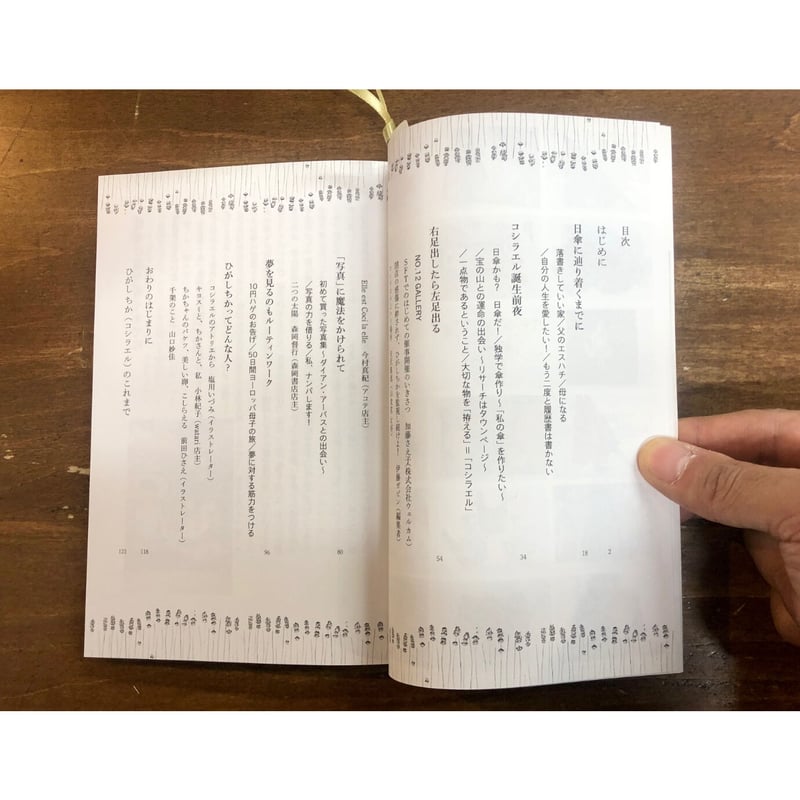 目次
はじめに
2
日傘に辿り着くまでに
18
落書きしていい家／父のエスハチ／母になる
／自分の人生を愛したい！／もう二度と履歴書は書かない
コシラエル誕生前夜
34
日傘かも？　日傘だ！／独学で傘作り〜「私の傘」を作りたい〜
／宝の山との運命の出会い〜リサーチはタウンページ〜
／一点物であるということ／大切な物を「拵える」＝「コシラエル」
右足出したら左足出る
54
NO.12 GALLERY
SFTでのはじめての催事開催のいきさつ　加藤さえ子（株式会社ウェルカム）
Elle est Coci la elle　今村真紀（アコテ店主）
「写真」に魔法をかけられて
80
初めて買った写真集〜ダイアン・アーバスとの出会い〜
／写真の力を借りる／私、ナンパします！
二つの太陽　森岡督行（森岡書店店主）
夢を見るのもルーティンワーク
96
10円ハゲのお告げ／50日間ヨーロッパ母子の旅／夢に対する筋力をつける
ひがしちかってどんな人？
コシラエルのアトリエから　塩川いづみ（イラストレーター）
キヨスミと、ちかさんと、私　小林紀子（watari 店主）
ちかちゃんのバケツ、美しい卵、こしらえる　前田ひさえ（イラストレーター）
千葉のこと　山口紗佳
おわりのはじまりに
118
ひがしちか（コシラエル）のこれまで
121